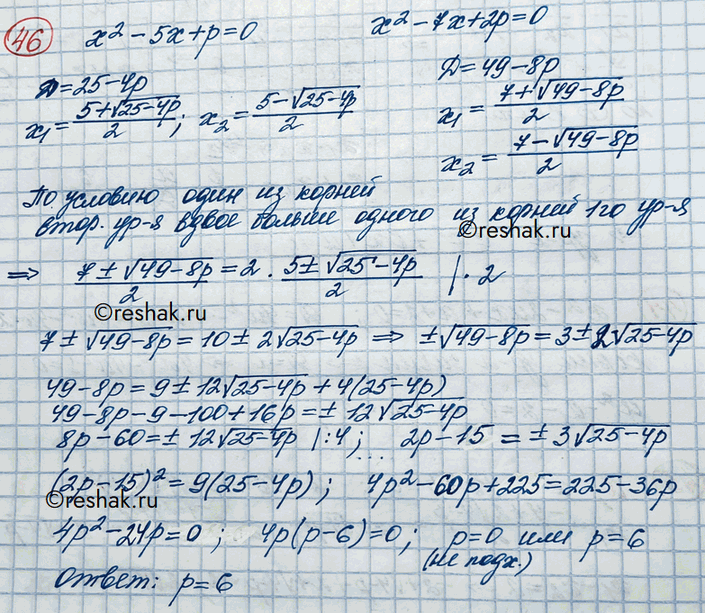 46
x² - 5x + p = 0
x² - 7x + 2p = 0
D = 25 - 4p
D = 49 - 8p
x₁ = (5 + √(25 - 4p))/2 ; x₂ = (5 - √(25 - 4p))/2
x₁ = (7 + √(49 - 8p))/2
x₂ = (7 - √(49 - 8p))/2
По условию один из корней
втор. ур-я вдвое больше одного из корней 1го ур-я
©reshak.ru
⇒ (7 ± √(49 - 8p))/2 = 2 · (5 ± √(25 - 4p))/2 | · 2
©reshak.ru
7 ± √(49 - 8p) = 10 ± 2√(25 - 4p) ⇒ ±√(49 - 8p) = 3 ± 2√(25 - 4p)
49 - 8p = 9 ± 12√(25 - 4p) + 4(25 - 4p)
49 - 8p - 9 - 100 + 16p = ± 12√(25 - 4p)
8p - 60 = ± 12√(25 - 4p) |:4 ; ... 2p - 15 = ± 3√(25 - 4p)
(2p - 15)² = 9(25 - 4p) ; 4p² - 60p + 225 = 225 - 36p
©reshak.ru
4p² - 24p = 0 ; 4p(p - 6) = 0 ; p = 0 или p = 6
(не подх.)
Ответ: p = 6